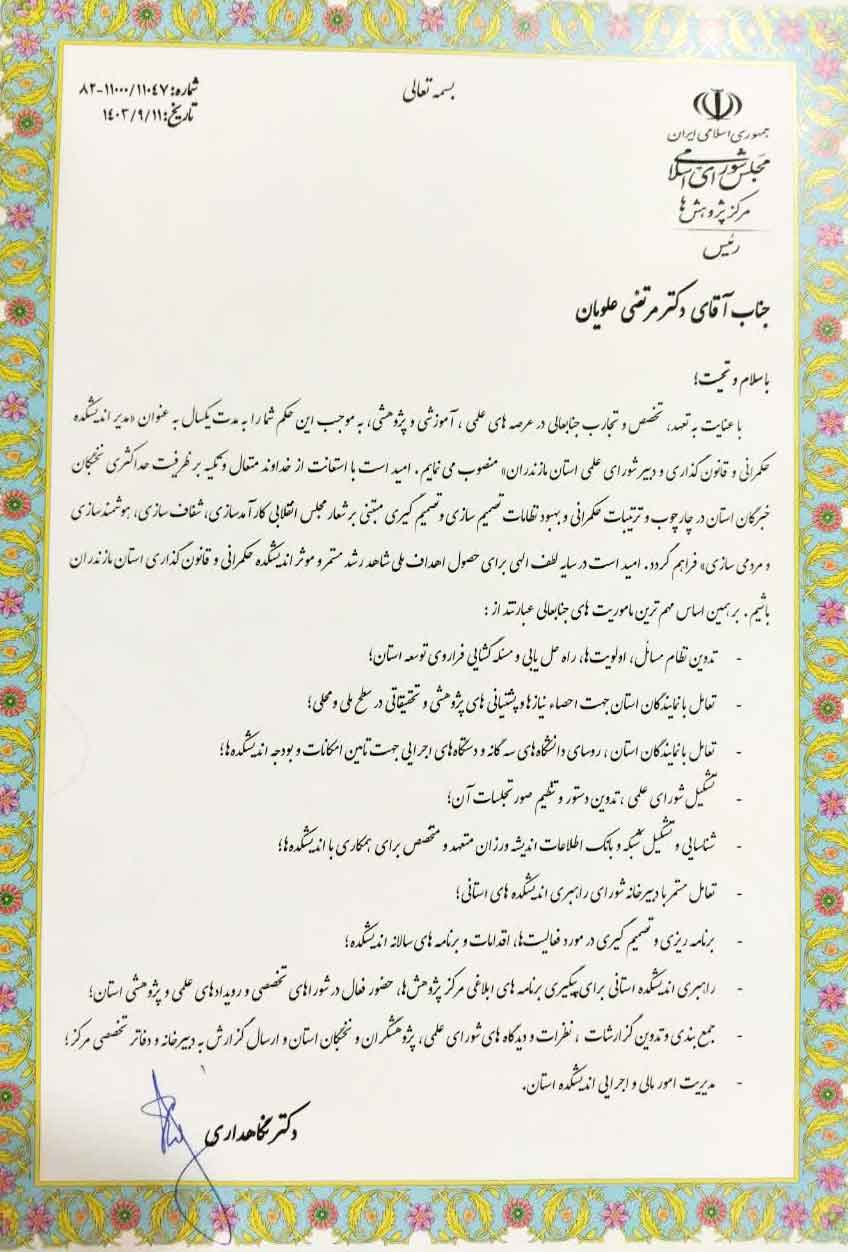 بسمه تعالی
شماره: ۸۲-۱۱۰۰۰/۱۱۰۴۷
تاریخ: ۱۴۰۳/۹/۱۱
جمهوری اسلامی ایران
مجلس شورای اسلامی
مرکز پژوهش‌ها
رئیس
جناب آقای دکتر مرتضی علویان
با سلام و تحیت؛
با عنایت به تعهد، تخصص و تجارب جنابعالی در عرصه های علمی ، آموزشی و پژوهشی، به موجب این حکم شما را به مدت یکسال به عنوان «مدیر اندیشکده
حکمرانی و قانون گذاری و دبیر شورای علمی استان مازندران» منصوب می نمایم . امید است با استعانت از خداوند متعال و تکیه بر ظرفیت حداکثری نخبگان
خبرگان استان در چارچوب و ترتیبات حکمرانی و بهبود نظامات تصمیم سازی و تصمیم گیری مبتنی بر شعار مجلس انقلابی کارآمدسازی، شفاف سازی، هوشمندسازی
و مردمی سازی» فراهم گردد . امید است در سایه لطف الهی برای حصول اهداف ملی شاهد رشد مستمر و موثر اندیشکده حکمرانی و قانون گذاری استان مازندران
باشیم . بر همین اساس مهم ترین ماموریت های جنابعالی عبارتند از :
- تدوین نظام مسائل، اولویت‌ها، راه حل یابی و مسئله گشایی فراروی توسعه استان؛
- تعامل با نمایندگان استان جهت احصاء نیازها و پشتیبانی های پژوهشی و تحقیقاتی در سطح ملی و محلی؛
- تعامل با نمایندگان استان ، روسای دانشگاه‌های سه گانه و دستگاه‌های اجرایی جهت تامین امکانات و بودجه اندیشکده‌ها؛
- تشکیل شورای علمی ، تدوین دستور و تنظیم صورتجلسات آن؛
- شناسایی و تشکیل شبکه و بانک اطلاعات اندیشه ورزان متعهد و متخصص برای همکاری با اندیشکده‌ها؛
- تعامل مستمر با دبیرخانه شورای راهبری اندیشکده های استانی؛
- برنامه ریزی و تصمیم گیری در مورد فعالیت‌ها، اقدامات و برنامه های سالانه اندیشکده؛
- راهبری اندیشکده استانی برای پیگیری برنامه های ابلاغی مرکز پژوهش‌ها، حضور فعال در شوراهای تخصصی و رویدادهای علمی و پژوهشی استان؛
- جمع بندی و تدوین گزارشات ، نظرات و دیدگاه های شورای علمی، پژوهشگران و نخبگان استان و ارسال گزارش به دبیرخانه و دفاتر تخصصی مرکز؛
- مدیریت امور مالی و اجرایی اندیشکده استان.
دکتر نگاهداری